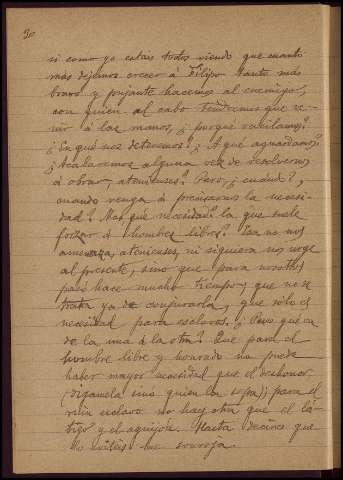 30
si como ya estais todos viendo que cuanto
más dejemos crecer á Filipo tanto más
bravo y pujante hacemos al enemigo,
con quien al cabo tendremos que ve-
nir á las manos, ¿porqué vacilamos?
¿En qué nos detenemos? ¿A qué aguardamos?
¿Acabaremos alguna vez de resolvernos
á obrar, atenienses? Pero, ¿cuándo?,
cuando venga á precisarnos la necesi-
dad? Mas qué necesidad? la que suele
forzar á hombres libres? Esa no nos
amenaza, atenienses, ni siquiera nos urge
al presente, sino que para nosotros
pasó hace mucho tiempo y que no se
trata ya de conjurarla, que sólo es
necesidad para esclavos. ¿Pero qué va
de la una á la otra? Que para el
hombre libre y honrado no puede
haber mayor necesidad que el deshonor
(dígamela sinó quien la sepa); para el
ruin esclavo no hay otra que el lá-
tigo y el aguijón. Hasta deciros que
lo evitéis me sonroja.